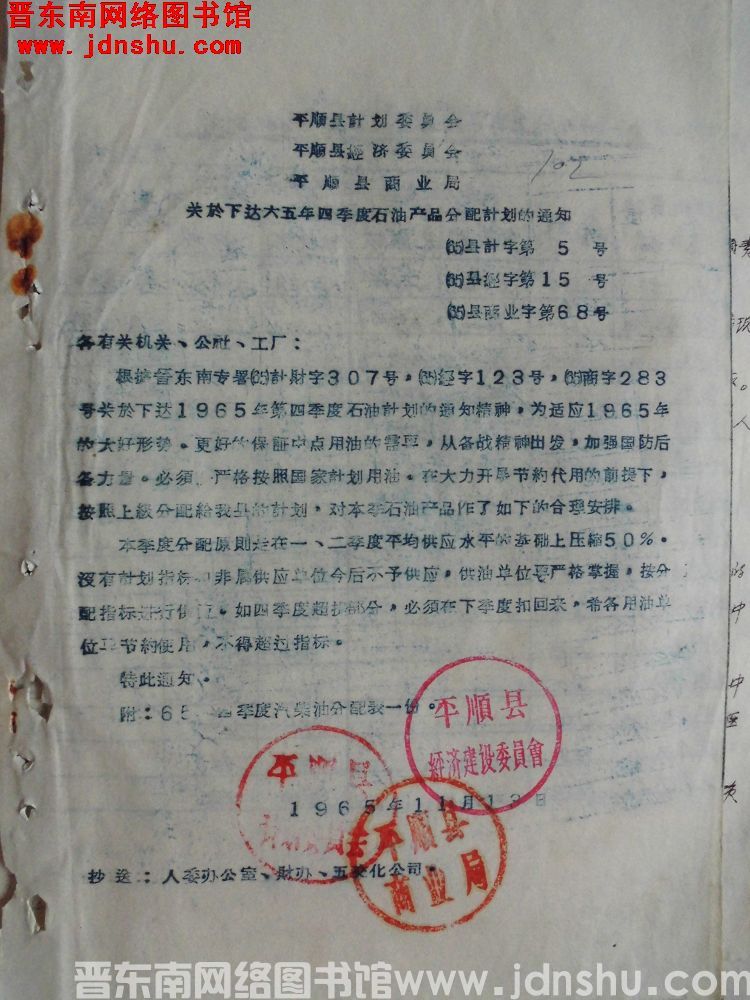 晋东南网络图书馆
www.jdnshu.com
平順县計划委員会
平順县經济委員会
平順县商业局
102
关於下达六五年四季度石油产品分配計划的通知
(65)县計字第5号
(65)县經字第15号
(65)县商业字第68号
各有关机关、公社、工厂：
根据晋东南专署(65)計財字307号，(65)經字123号，(65)商字283
号关於下达1965年第四季度石油計划的通知精神，为适应1965年
的大好形势。更好的保証中点用油的需要，从备战精神出发，加强国防后
备力量。必须 严格按照国家計划用油。在大力开展节約代用的前提下，
按照上級分配給我县的計划，对本季石油产品作了如下的合理安排。
本季度分配原則是在一、二季度平均供应水平的基础上压縮50%。
沒有計划指标和非属供应单位今后不予供应，供油单位要严格掌握，按分
配指标进行供应。如四季度超 部分，必须在下季度扣回来，希各用油单
位 节約使用，不得超过指标。
特此通知。
附：65 四季度汽柴油分配表一份。
平順县
經济建设委員會
平順县
1965年11月13日
平順县
商业局
抄送：人委办公室、財办、五交化公司。
晋东南网络图书馆www.jdnshu.com